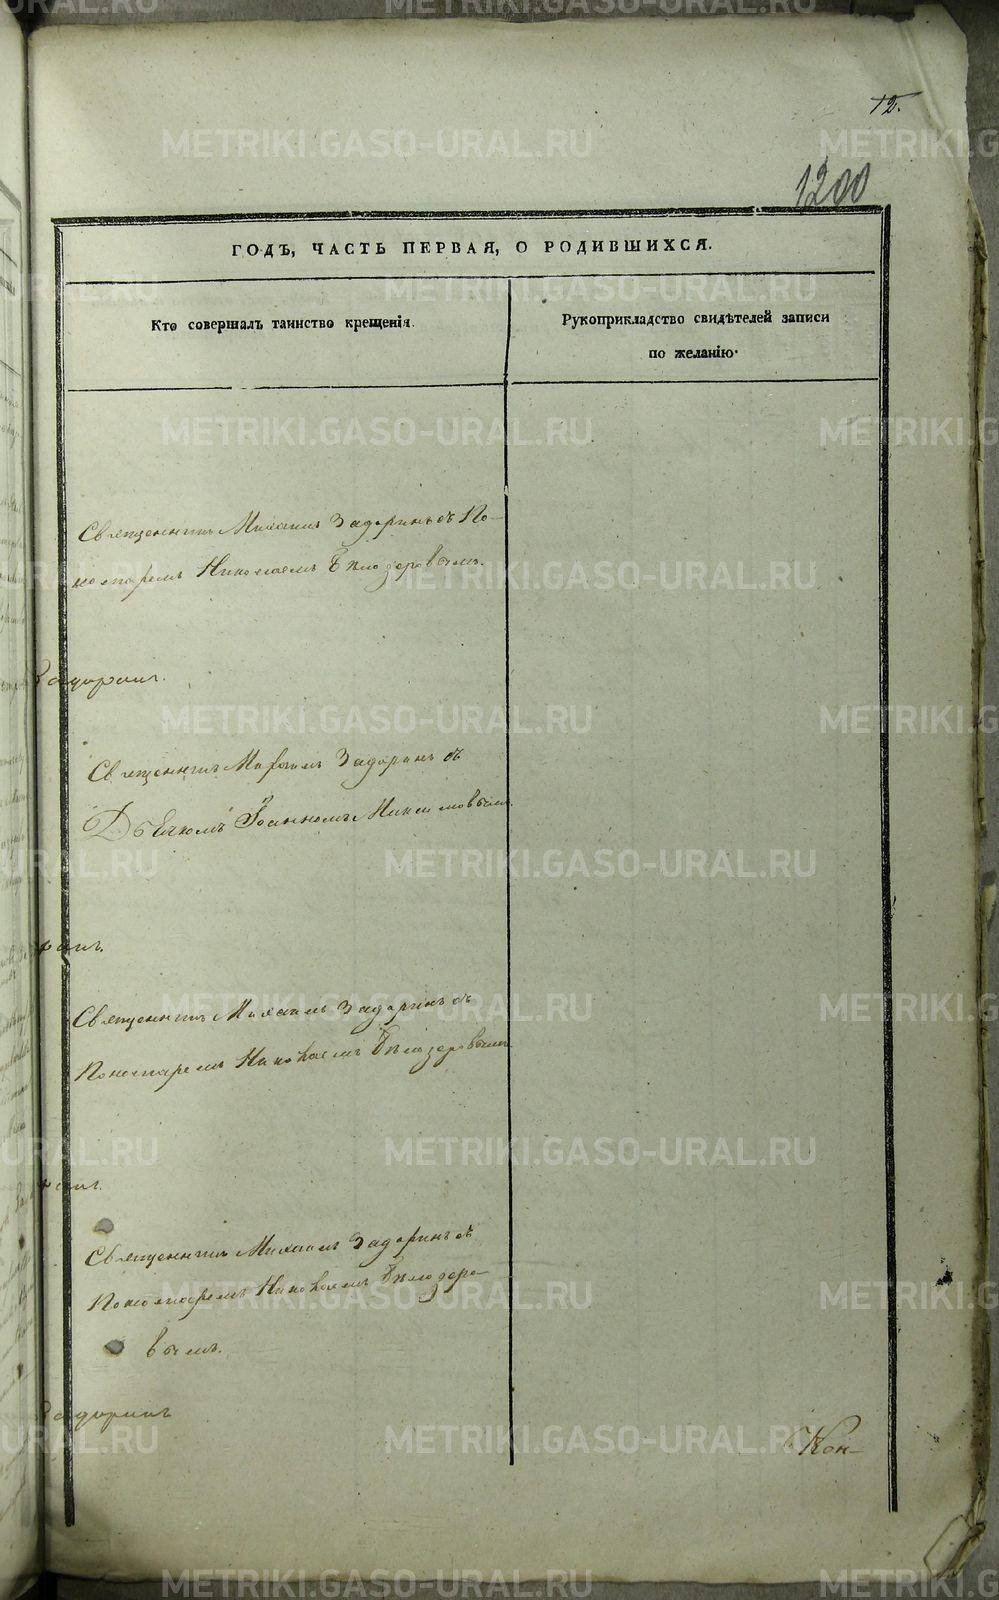 12.
1200
ГОДЪ, ЧАСТЬ ПЕРВАЯ, О РОДИВШИХСЯ.
Кто совершалъ таинство крещенія.
Рукоприкладство свидѣтелей записи
по желанію.
Священникъ Михаилъ Задоринъ съ По-
номаремъ Николаемъ Бѣлозеровымъ.
Задоринъ.
Священникъ Михаилъ Задоринъ съ
Дьячкомъ Іоанномъ Максимовымъ.
ринъ.
Священникъ Михаилъ Задоринъ съ
Пономаремъ Николаемъ Бѣлозеровымъ
ринъ.
Священникъ Михаилъ Задоринъ съ
Пономаремъ Николаемъ Бѣлозеро-
вымъ.
Задоринъ
Кон-
METRIKI.GASO-URAL.RU